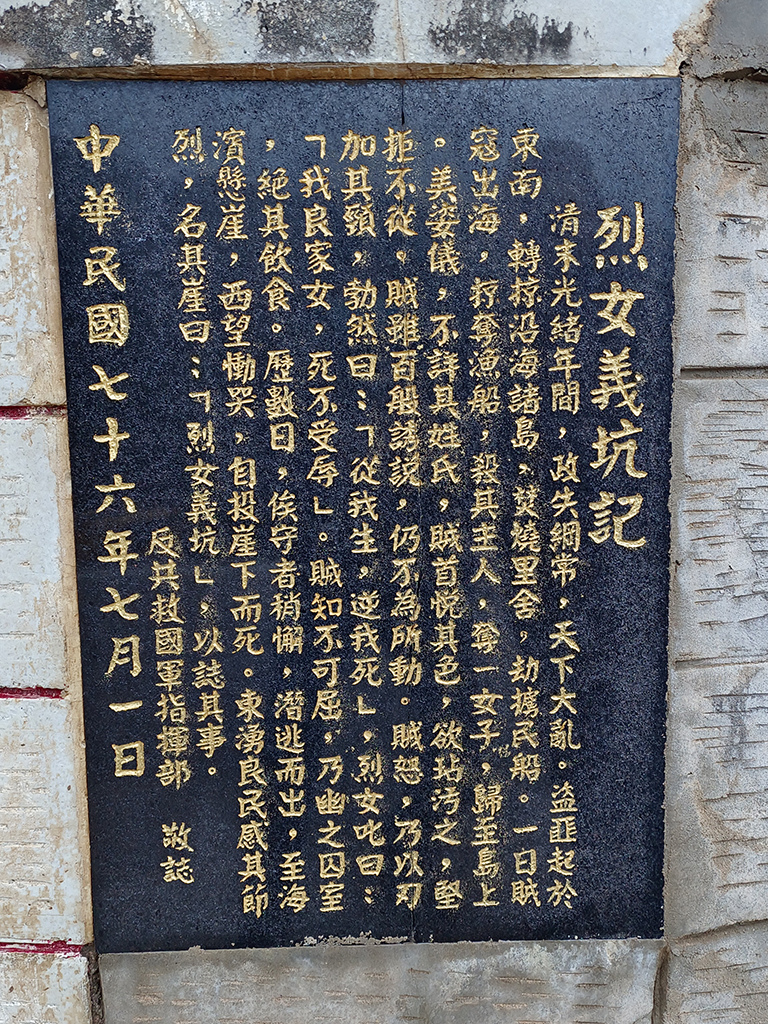 烈女義坑記
清末光緒年間，政失綱常，天下大亂。盜匪起於
東南，轉掠沿海諸島，焚燒里舍，劫擄民船。一日賊
寇出海，捋奪漁船，殺其主人，奪一女子，歸至島上
。美姿儀，不詳其姓氏，賊首悅其色，欲玷污之，堅
拒不從。賊雖百般誘說，仍不為所動。賊怒，乃以刃
加其頸，勃然曰：「從我生，逆我死」，烈女叱曰：
「我良家女，死不受辱」。賊知不可屈，乃幽之囚室
，絕其飲食。歷數日，俟守者稍懈，潛逃而出，至海
濱懸崖，西望慟哭，自投崖下而死。東湧良民感其節
烈，名其崖曰：「烈女義坑」，以誌其事。
反共救國軍指揮部 敬誌
中華民國七十六年七月一日